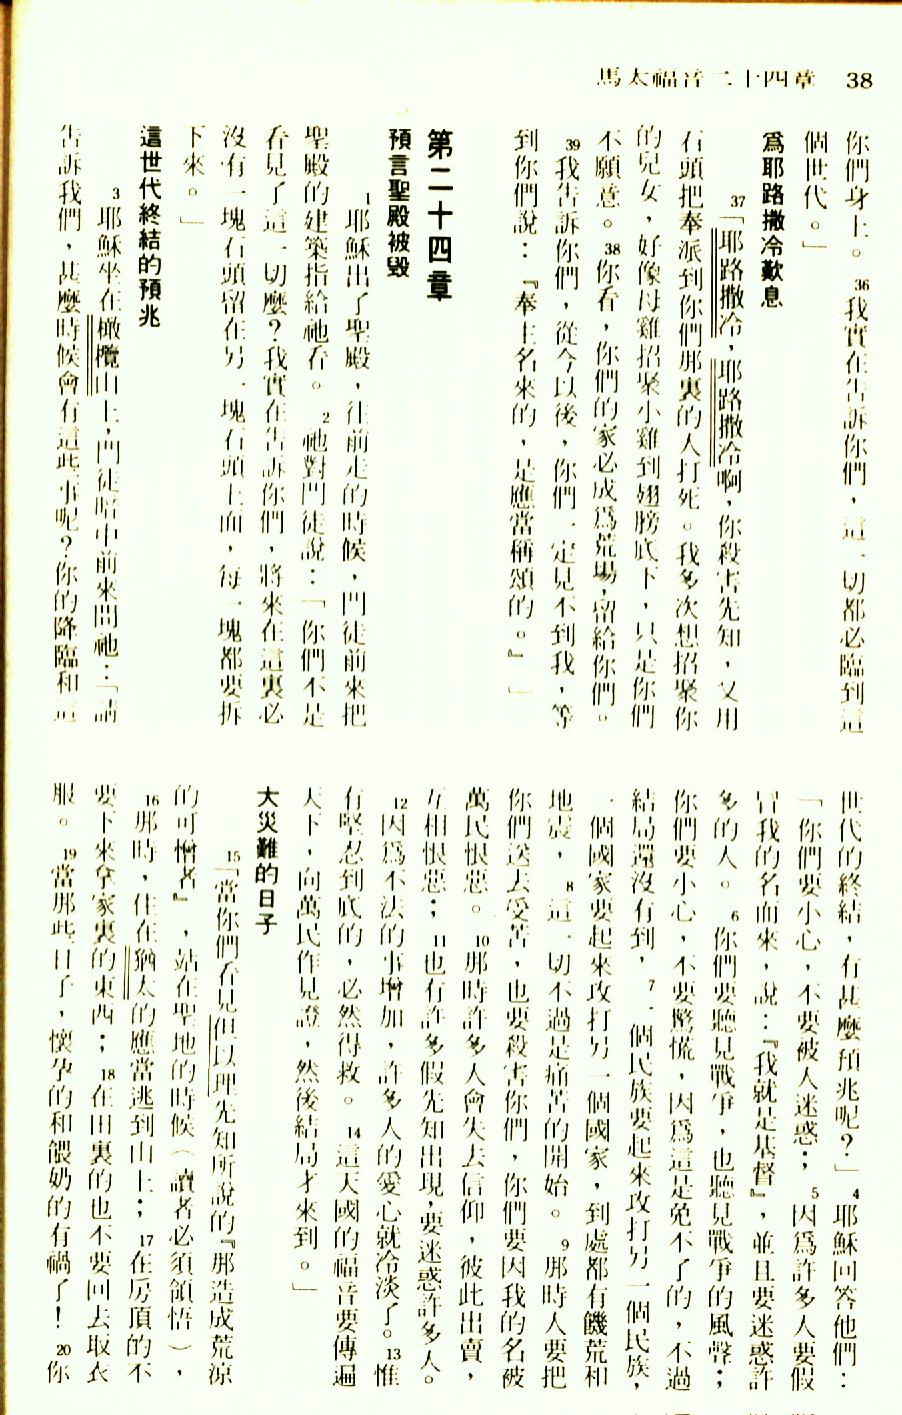 馬太福音二十四章 38
你們身上。36我實在告訴你們，這一切都必臨到這
個世代。」
爲耶路撒冷歎息
37「耶路撒冷，耶路撒冷啊，你殺害先知，又用
石頭把奉派到你們那裏的人打死。我多次想招聚你
的兒女，好像母雞招聚小雞到翅膀底下，只是你們
不願意。38你看，你們的家必成爲荒場，留給你們。
39我告訴你們，從今以後，你們一定見不到我，等
到你們說：『奉主名來的，是應當稱頌的。』」
第二十四章
預言聖殿被毀
1耶穌出了聖殿，往前走的時候，門徒前來把
聖殿的建築指給祂看。2祂對門徒說：「你們不是
看見了這一切麼？我實在告訴你們，將來在這裏必
沒有一塊石頭留在另一塊石頭上面，每一塊都要拆
下來。」
這世代終結的預兆
3耶穌坐在橄欖山上，門徒暗中前來問祂：「請
告訴我們，甚麼時候會有這些事呢？你的降臨和這
世代的終結，有甚麼預兆呢？」4耶穌回答他們：
「你們要小心，不要被人迷惑；5因爲許多人要假
冒我的名而來，說：『我就是基督』，並且要迷惑許
多的人。6你們要聽見戰爭，也聽見戰爭的風聲；
你們要小心，不要驚慌，因爲這是免不了的，不過
結局還沒有到，7一個民族要起來攻打另一個民族，
一個國家要起來攻打另一個國家，到處都有饑荒和
地震，8這一切不過是痛苦的開始。9那時人要把
你們送去受苦，也要殺害你們，你們要因我的名被
萬民恨惡。10那時許多人會失去信仰，彼此出賣，
互相恨惡；11也有許多假先知出現，要迷惑許多人。
12因爲不法的事增加，許多人的愛心就冷淡了。13惟
有堅忍到底的，必然得救。14這天國的福音要傳遍
天下，向萬民作見證，然後結局才來到。」
大災難的日子
15「當你們看見但以理先知所說的『那造成荒涼
的可憎者』，站在聖地的時候（讀者必須領悟），
16那時，住在猶太的應當逃到山上；17在房頂的不
要下來拿家裏的東西；18在田裏的也不要回去取衣
服。19當那些日子，懷孕的和餵奶的有禍了！20你